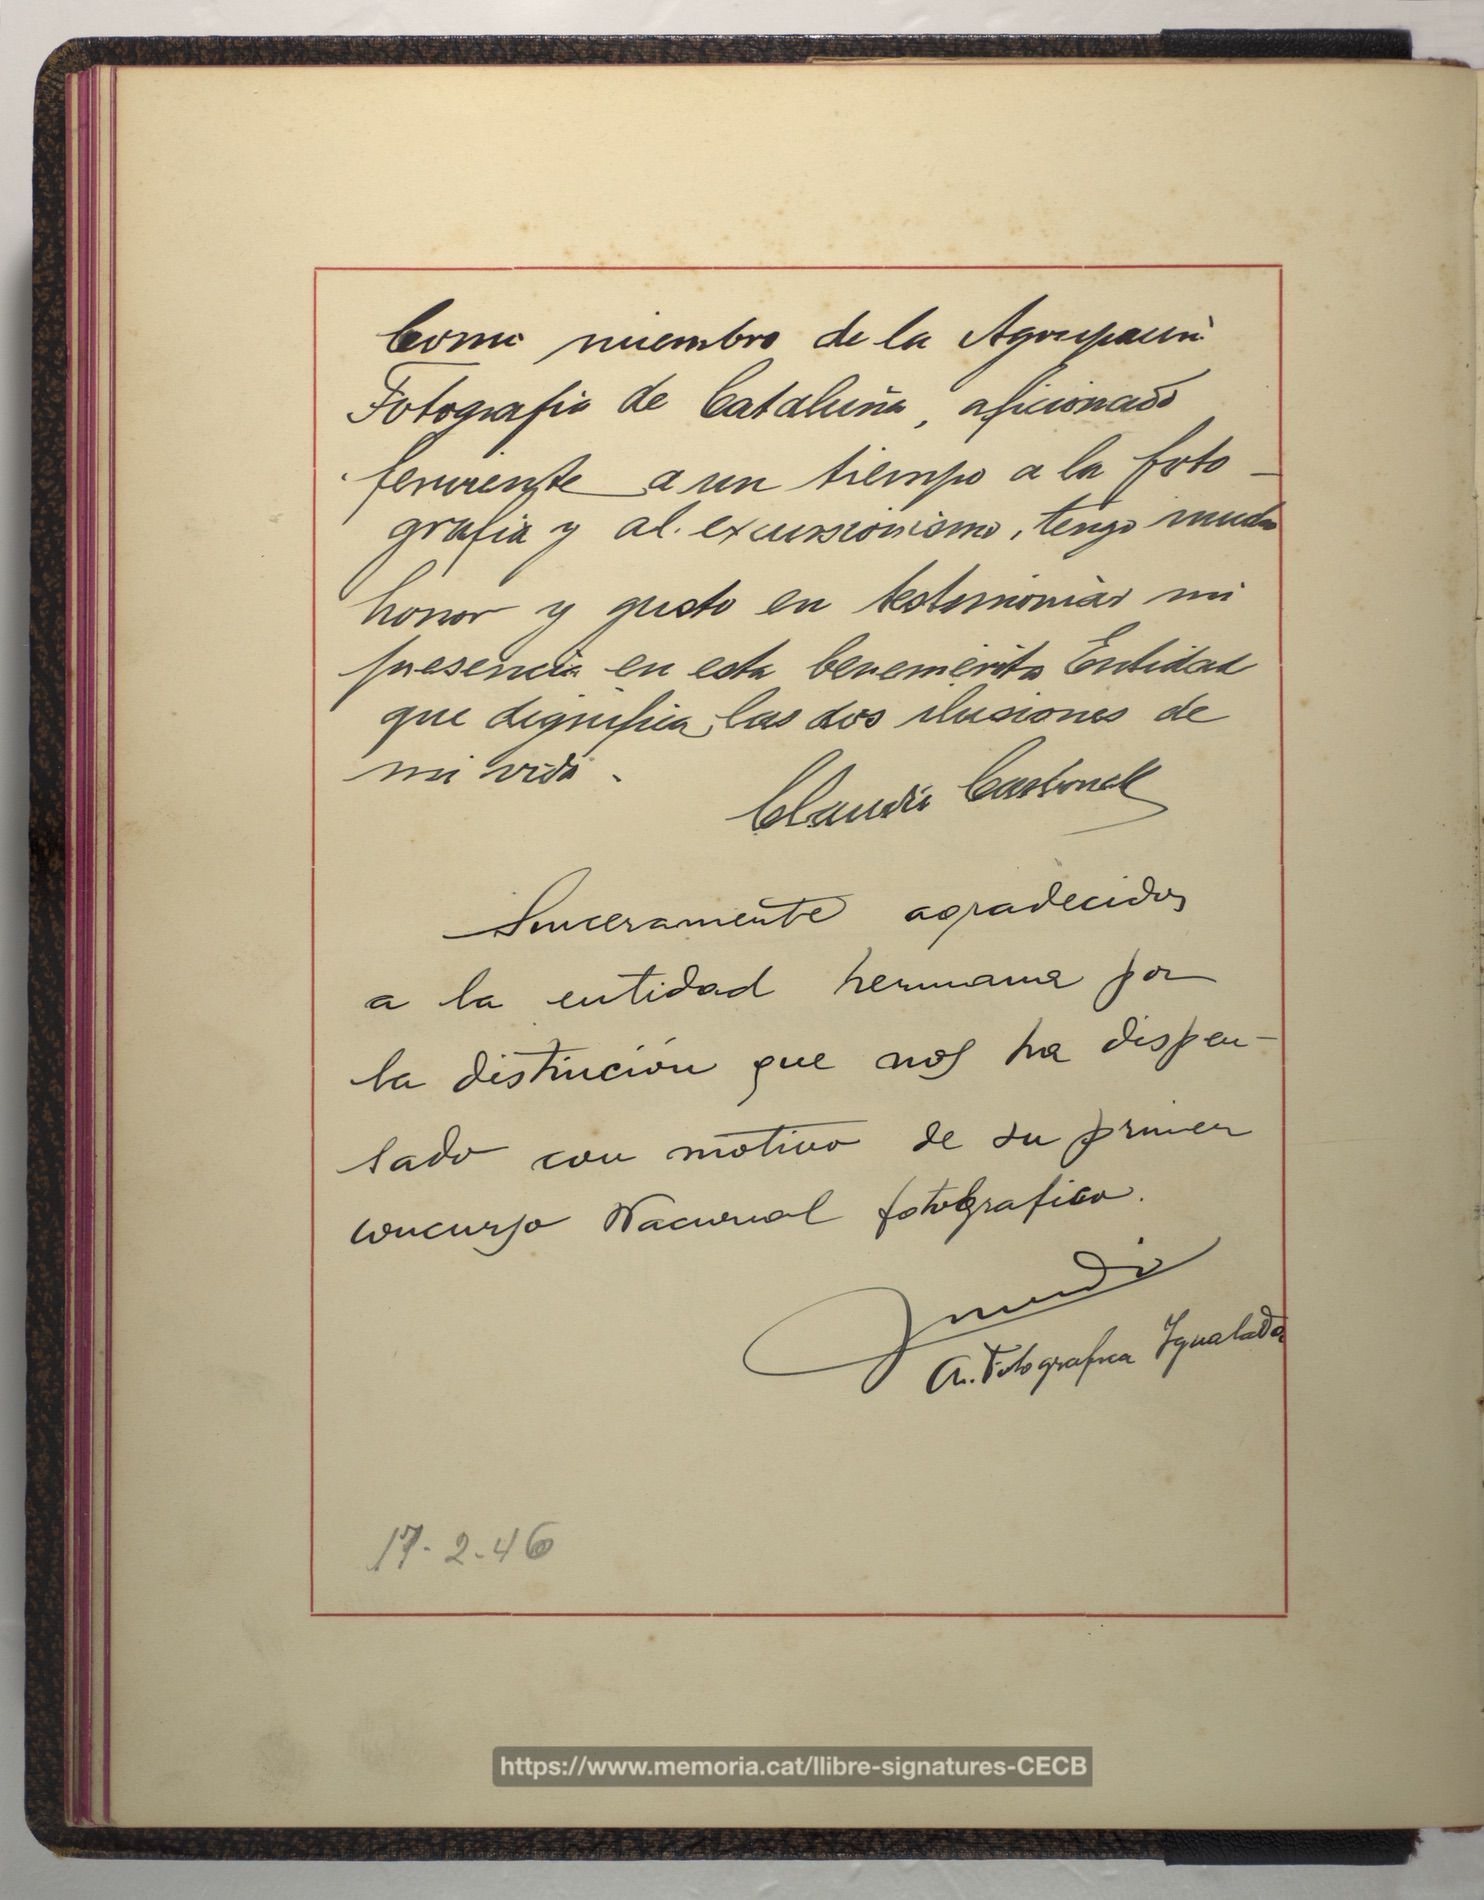 Como miembro de la Agrupación
Fotografia de Cataluña, aficionado
ferviente a un tiempo a la foto-
grafia y al excursionismo, tengo mucho
honor y gusto en testimoniar mi
presencia en esta benemérita Entidad
que dignifica las dos ilusiones de
mi vida.
Claudio Carbonell
Sinceramente agradecidos
a la entidad hermana por
la distinción que nos ha dispen-
sado con motivo de su primer
concurso Nacional fotografico.
A. Fotografica Igualada
17-2-46
https://www.memoria.cat/llibre-signatures-CECB